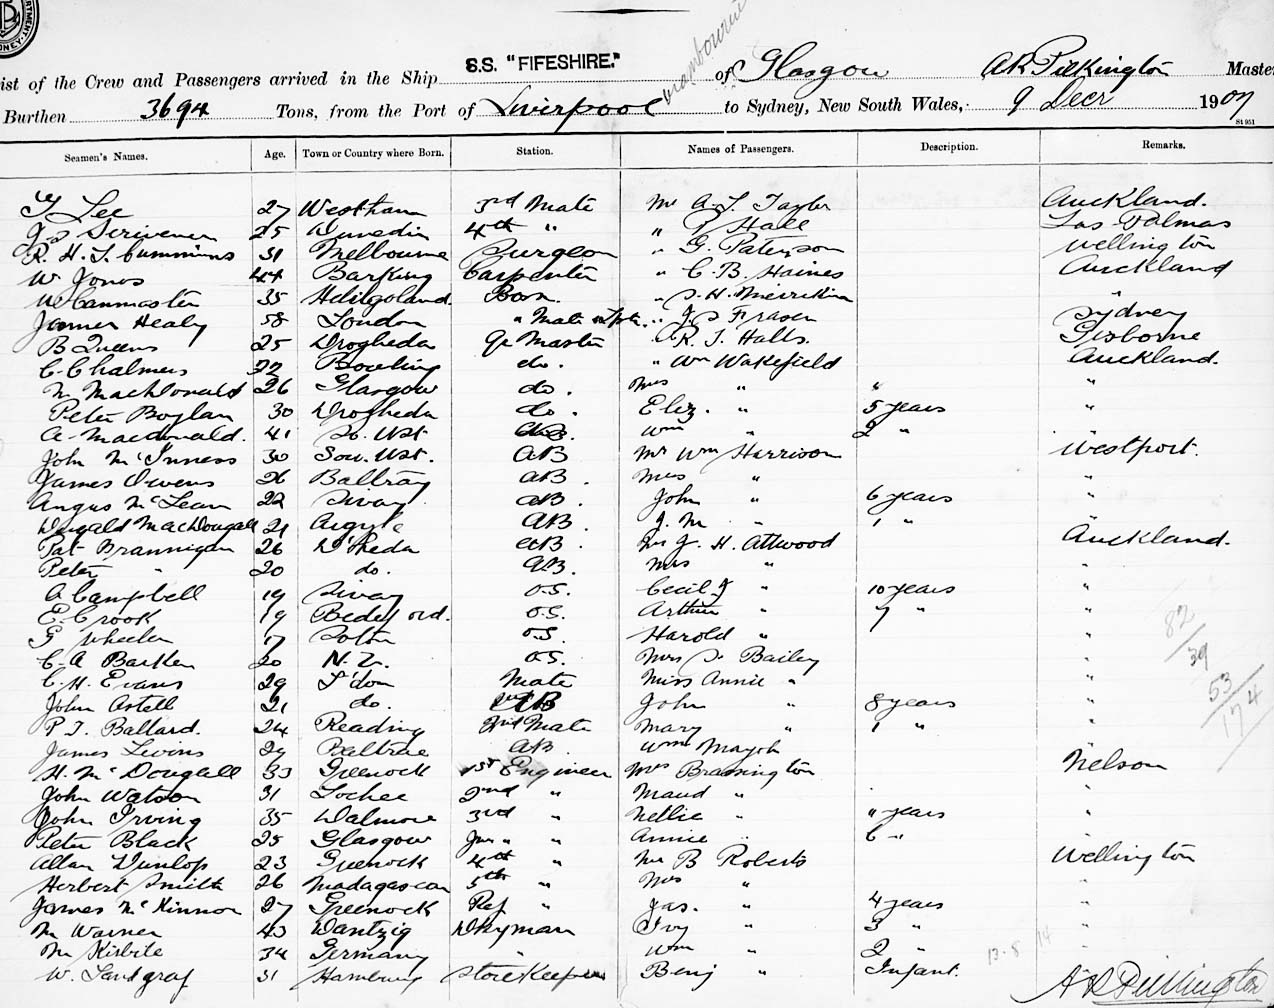 ist of the Crew and Passengers arrived in the Ship S.S. "FIFESHIRE." of Glasgow A R Pilkington Master
Burthen 3694 Tons, from the Port of Liverpool to Sydney, New South Wales, 9 Decr 1907
St 951
Seamen's Names. Age. Town or Country where Born. Station. Names of Passengers. Description. Remarks.
Lee 27 Westham 3rd Mate Mr A. L. Taylor Auckland.
Scrivener 25 Dunedin 4th " " Hall Las Palmas
R. H. L. Cummins 31 Melbourne Surgeon " G. Paterson Wellington
W Jones 44 Barking Carpenter " C. B. Haines Auckland
35 Heligoland Bosn. " S. H. "
James Healy 58 London " Mate & Lptr. " J. S Fraser Sydney
B Queens 25 Drogheda Qr Master R. J. Halls. Gisborne
C. Chalmers 22 Bowling do. " Wm Wakefield Auckland.
N. MacDonald 26 Glasgow do. Mrs " " "
Peter Boylan 30 Drogheda do. Eliz. " 5 years "
A. Macdonald. 41 So. Ust AB. Wm " 2 "
John McInness 30 Sou. Ust. AB Mr Wm Harrison Westport.
James Owens 26 Baltray AB. Mrs " "
Angus McLean 22 AB. John " 6 years "
Dugald MacDougall 21 Argyle AB. J. M. " 1 " "
Pat Brannigan 26 D'heda AB. Mr J. H. Attwood Auckland.
Peter " 20 do. AB. Mrs " "
A Campbell 19 O.S. Cecil J " 10 years "
E. Crook 19 Bedford. O.S. Arthur " 7 " "
G Wheeler 17 O.S. Harold " "
C. A Barker 20 N. Z. O.S. Mrs S. Bailey "
C. H. Evans 29 L'don Mate Miss Annie " "
John Astell 21 do. AB John " 8 years "
P. J. Ballard. 24 Reading 2nd Mate Mary " 1 " "
James Levins 29 AB. Wm "
H. McDougall 33 Greenock 1st Engineer Mrs Brassington Nelson
John Watson 31 Lochee 2nd " Maud " "
John Irving 35 3rd " Nellie " " years "
Peter Black 25 Glasgow Jnr " " Annie " 6 " "
Allan Dunlop 23 Greenock 4th " Mr B Roberts Wellington
Herbert Smith 26 Madagascar 5th " Mrs " "
James McKinnon 27 Greenock Ref " Jas. " 4 years "
M Warner 43 Dantzig Dkyman Ivy " 3 " "
34 Germany " Wm " 2 " "
W. Landgraf 31 Hamburg Storekeeper Benj " Infant.
A R Pilkington
82
39
53
174
13-8
14